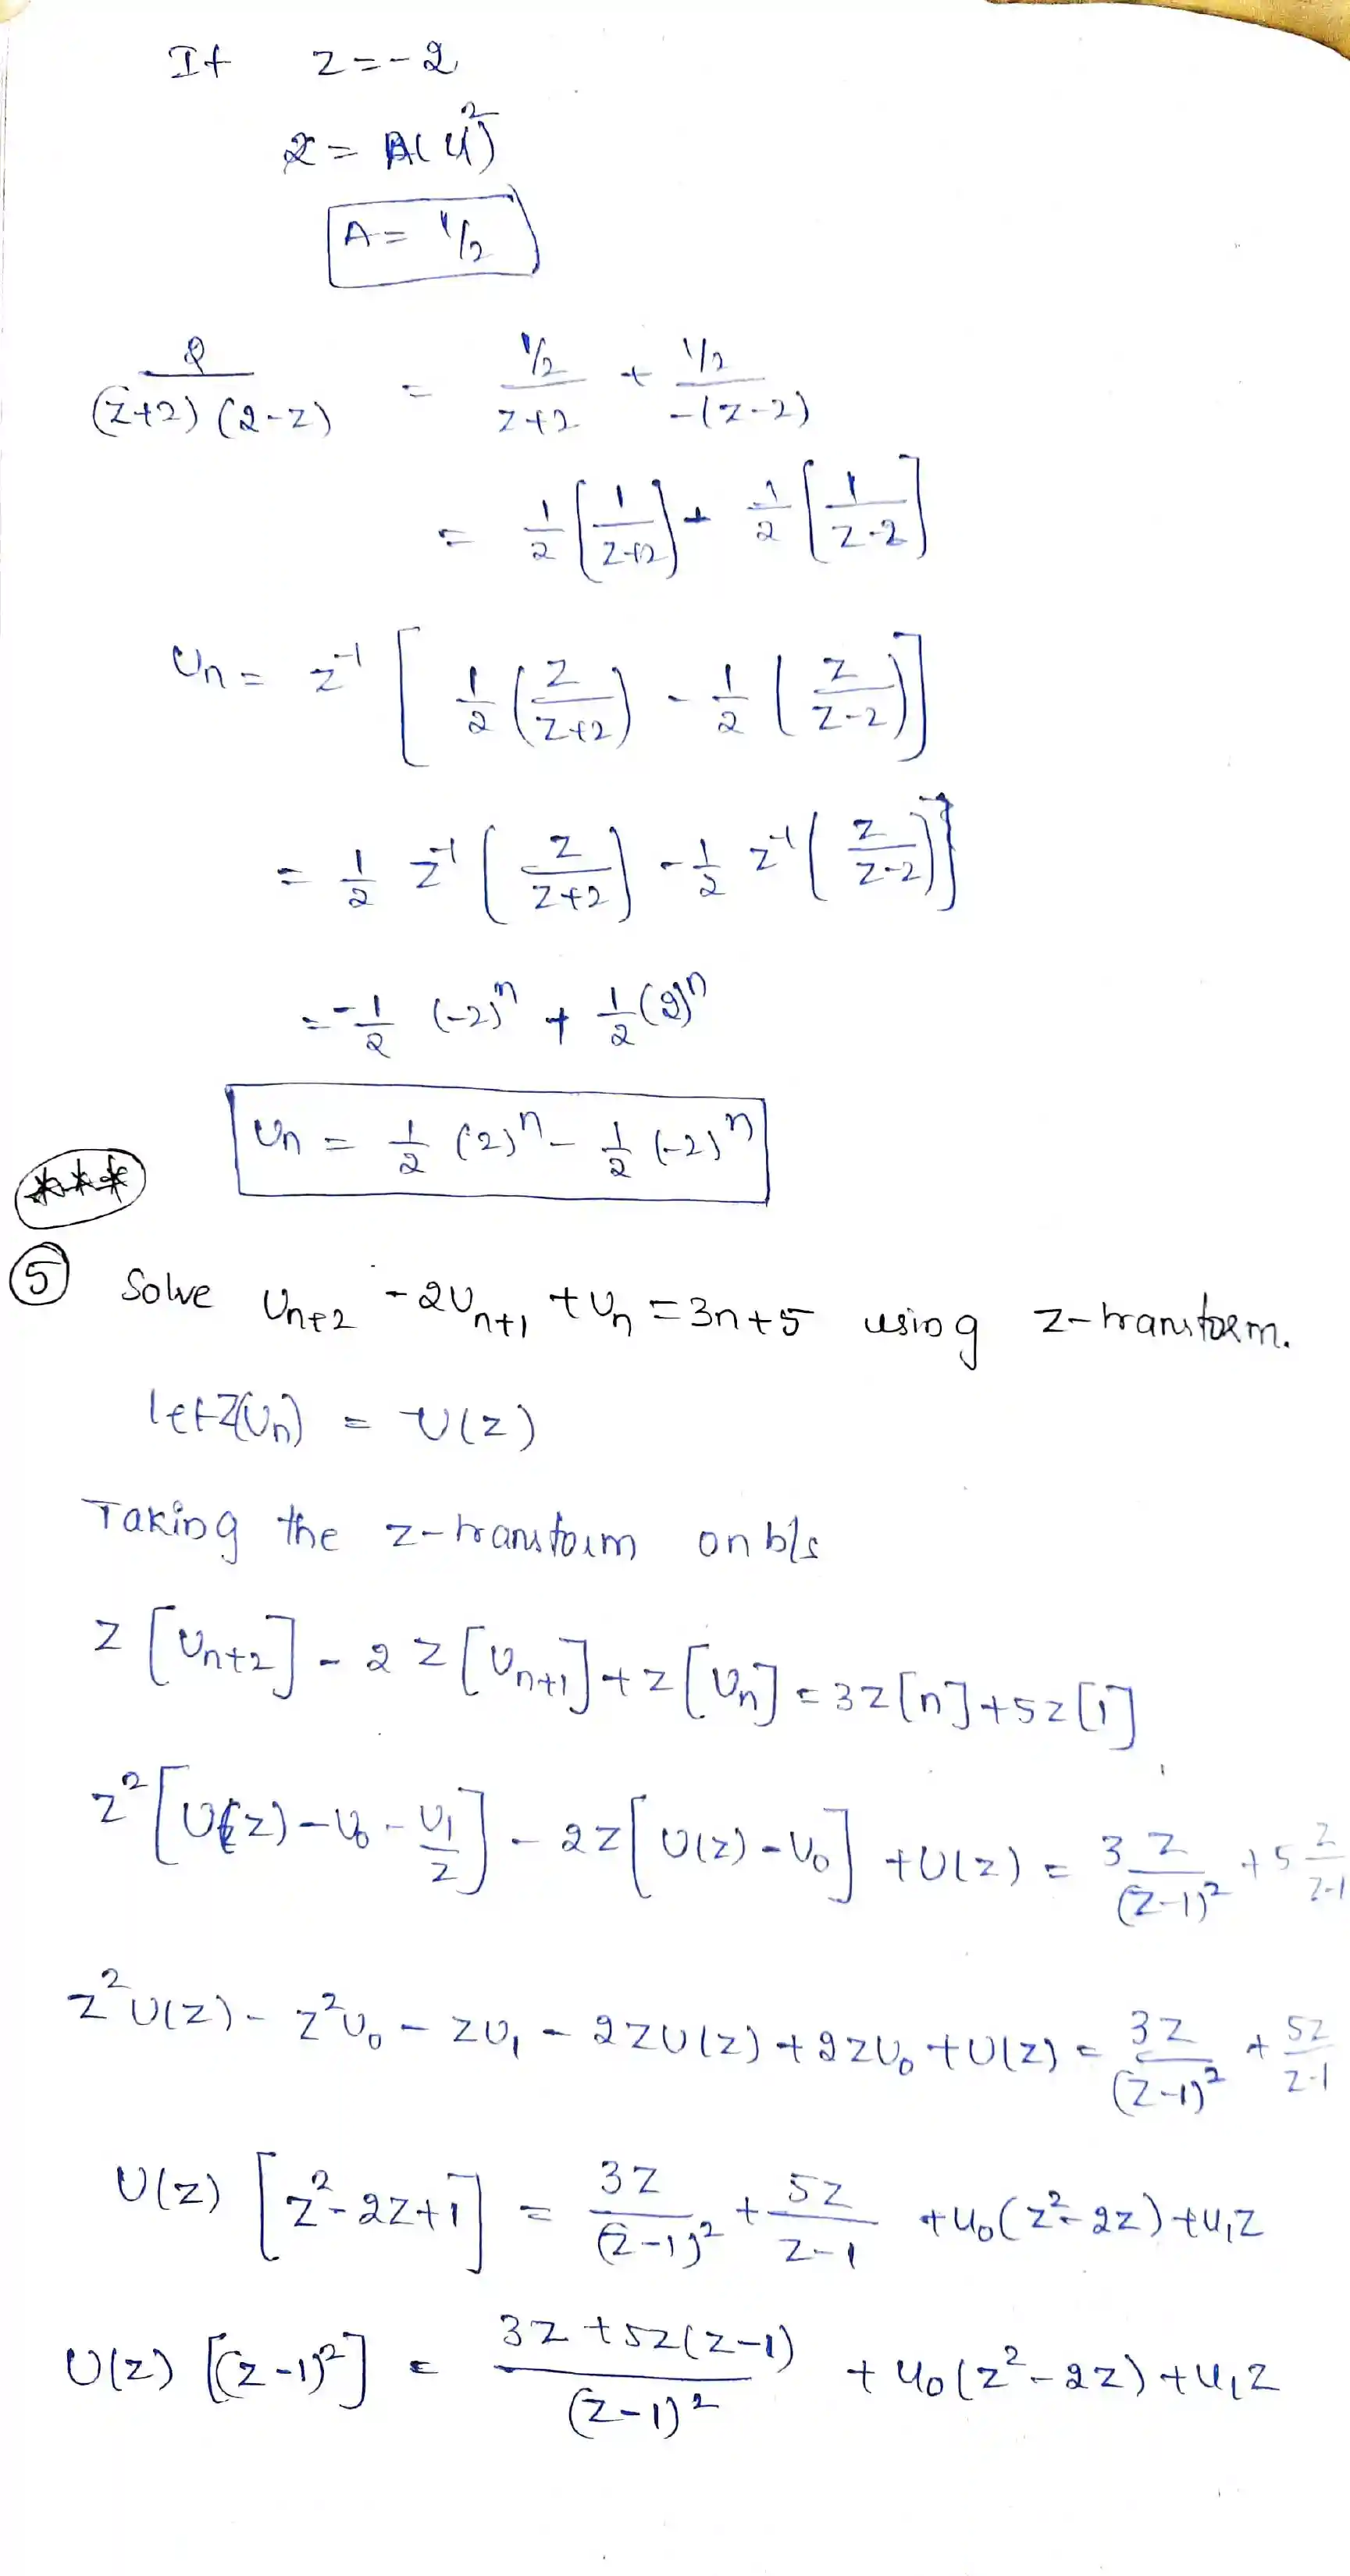 If z = -2
2 = A(4)
A = 1/2
2/((z+2)(2-z)) = (1/2)/(z+2) + (1/2)/(-(z-2))
= 1/2 [1/(z+2)] + 1/2 [1/(z-2)]
Un = z⁻¹ [1/2 (z/(z+2)) - 1/2 (z/(z-2))]
= 1/2 z⁻¹ (z/(z+2)) - 1/2 z⁻¹ (z/(z-2))}
= -1/2 (-2)ⁿ + 1/2 (2)ⁿ
Un = 1/2 (2)ⁿ - 1/2 (-2)ⁿ
***
(5) Solve Un+2 - 2Un+1 + Un = 3n+5 using z-transform.
let Z(Un) = U(z)
Taking the z-transform on b/s
z[Un+2] - 2z[Un+1] + z[Un] = 3z[n] + 5z[1]
z²[U(z) - U₀ - U₁/z] - 2z[U(z) - U₀] + U(z) = 3 z/(z-1)² + 5 z/(z-1)
z²U(z) - z²U₀ - zU₁ - 2zU(z) + 2zU₀ + U(z) = 3z/(z-1)² + 5z/(z-1)
U(z) [z² - 2z + 1] = 3z/(z-1)² + 5z/(z-1) + U₀(z² - 2z) + U₁z
U(z) [(z-1)²] = (3z + 5z(z-1))/(z-1)² + U₀(z² - 2z) + U₁z